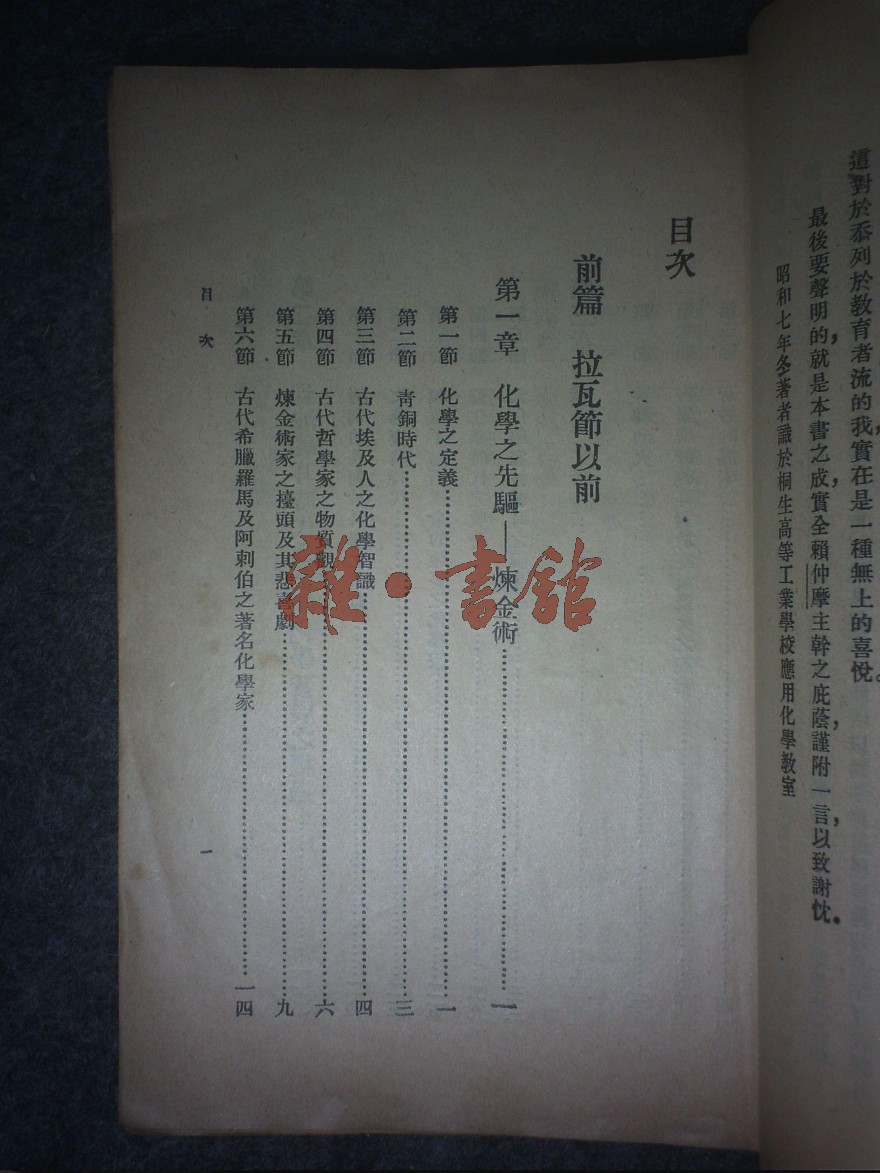 這對於忝列於教育者流的我，實在是一種無上的喜悅。
最後要聲明的，就是本書之成，實全賴仲摩主幹之庇蔭，謹附一言，以致謝忱。
昭和七年冬著者識於桐生高等工業學校應用化學教室
目次
前篇 拉瓦節以前
第一章 化學之先驅——煉金術……一
第一節 化學之定義……一
第二節 青銅時代……三
第三節 古代埃及人之化學智識……四
第四節 古代哲學家之物質觀……六
第五節 煉金術家之擡頭及其悲喜劇……九
第六節 古代希臘羅馬及阿剌伯之著名化學家……一四
目次
一
雜·書館